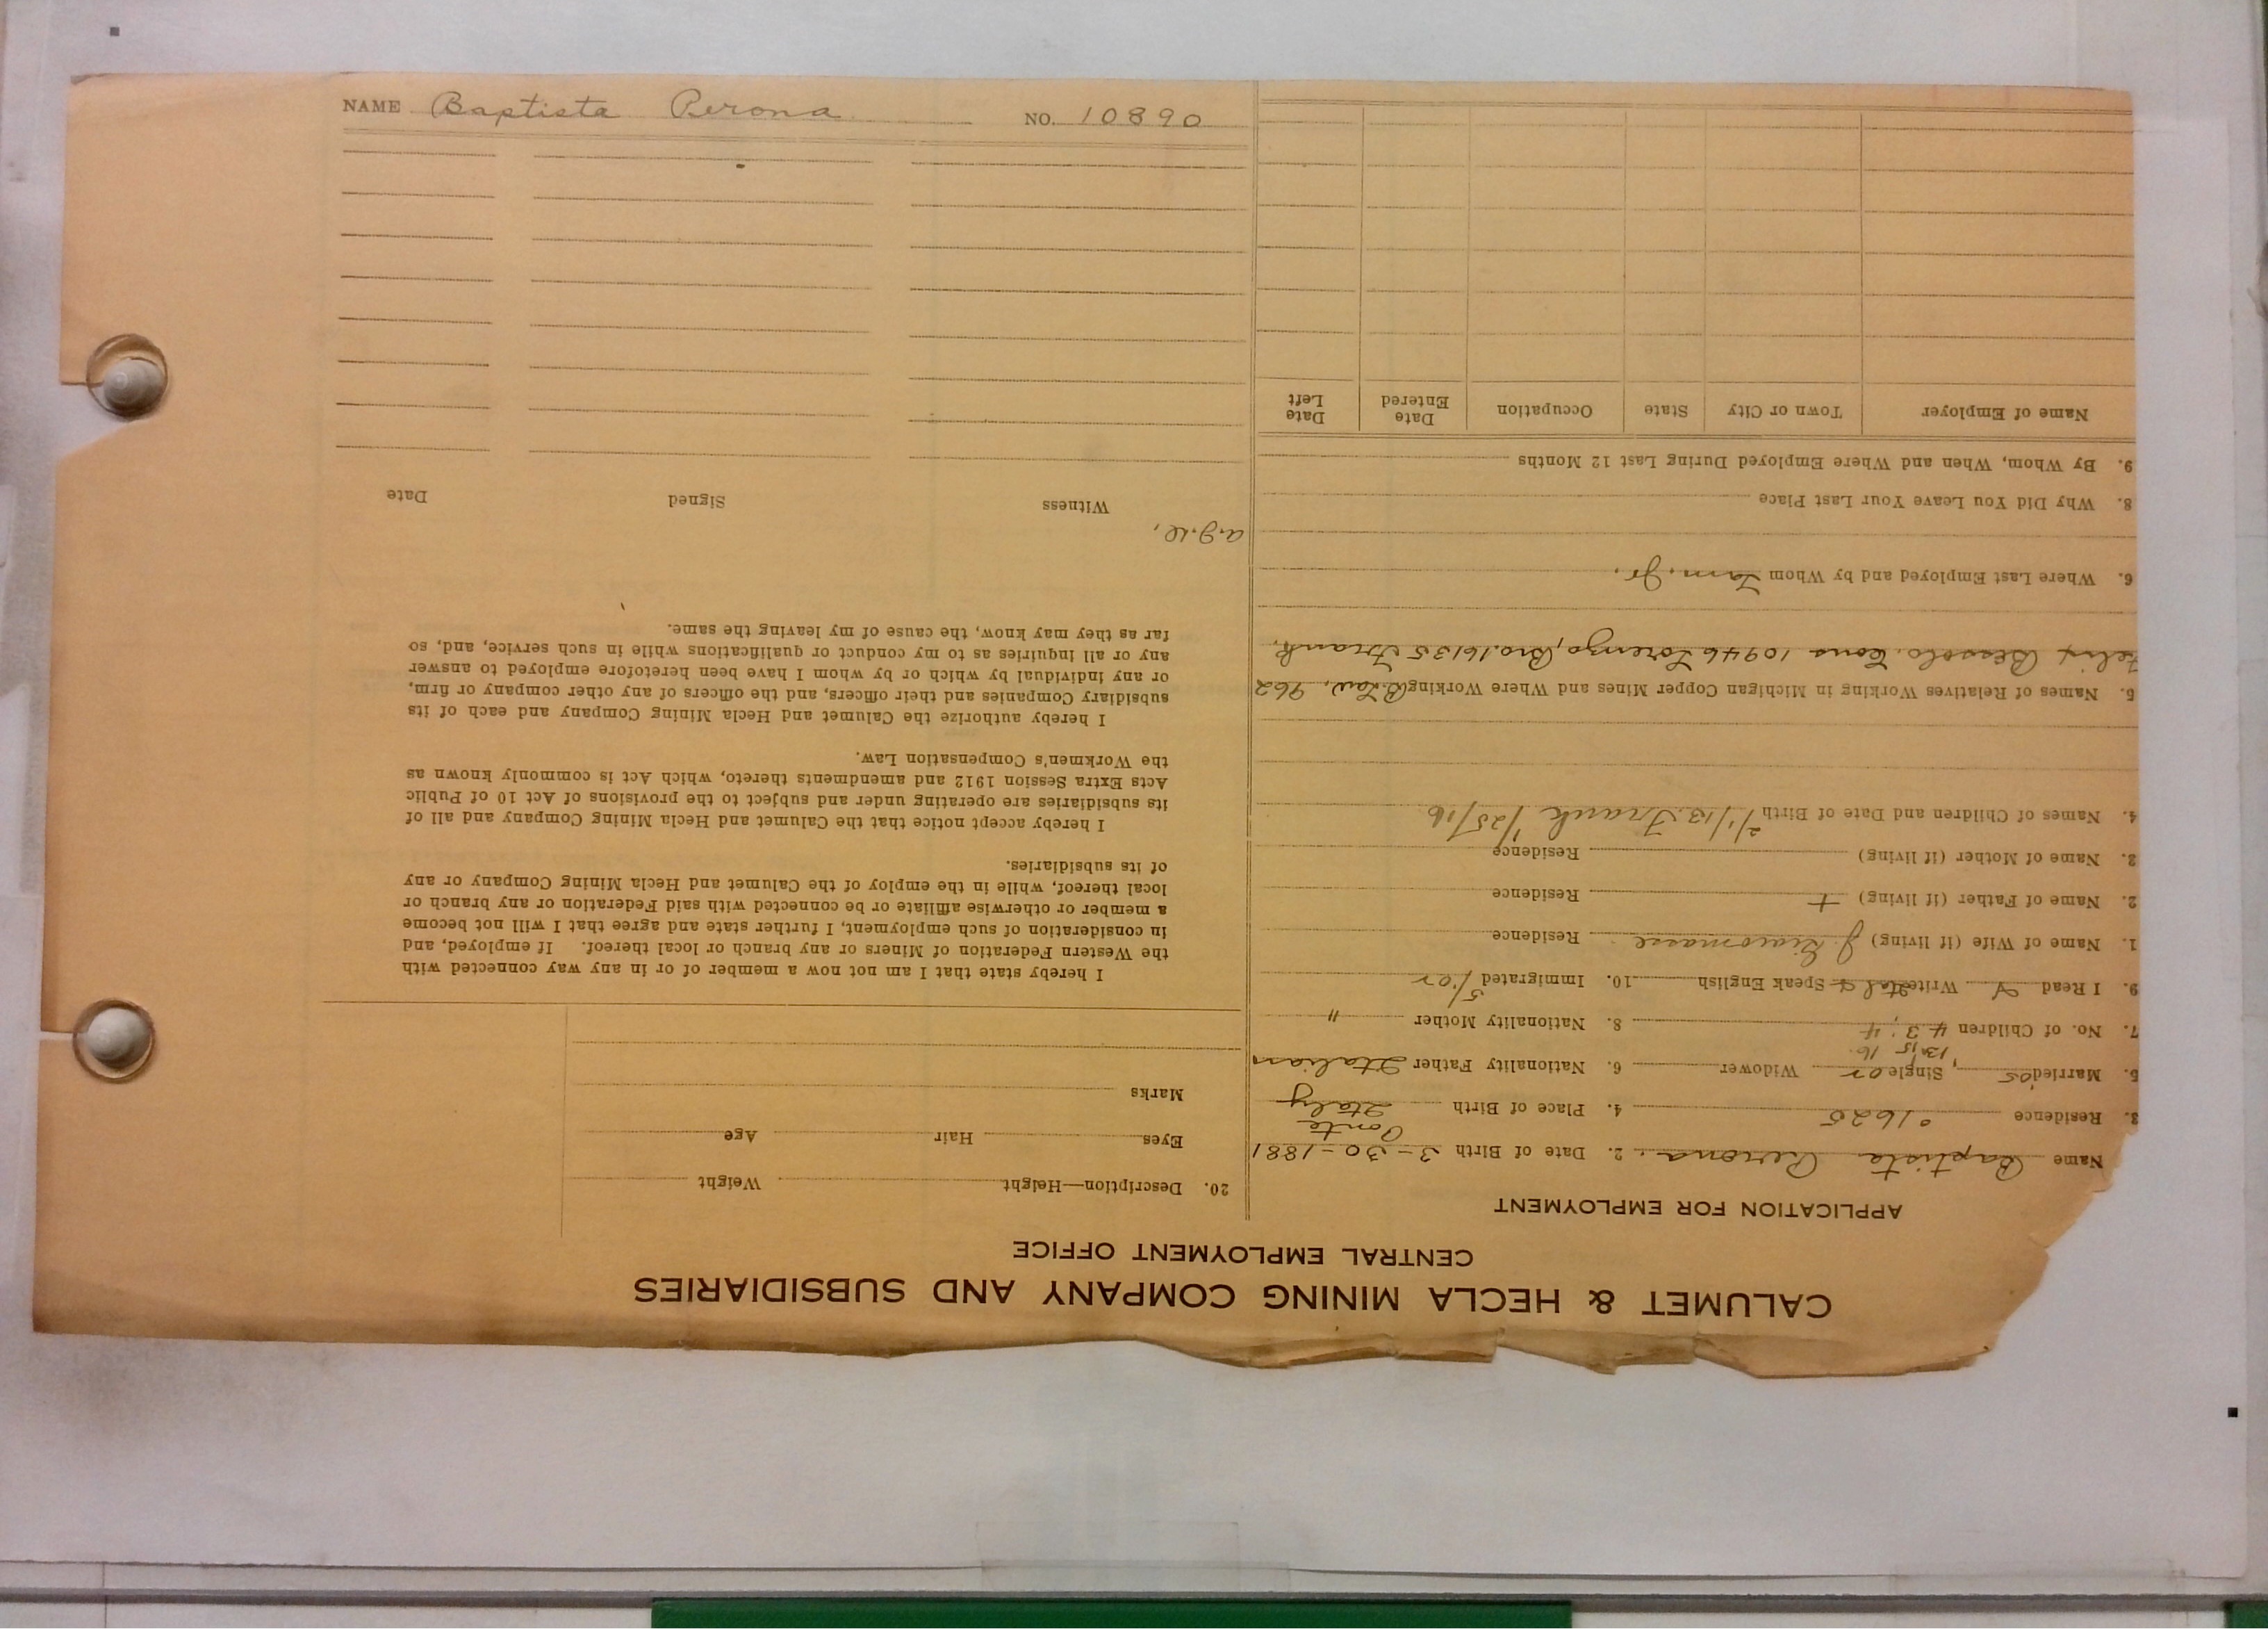 NAME Baptista Perona NO. 10890
CALUMET & HECLA MINING COMPANY AND SUBSIDIARIES
CENTRAL EMPLOYMENT OFFICE
APPLICATION FOR EMPLOYMENT
Name Baptista Perona. 2. Date of Birth 3-30-1881
3. Residence 1625 4. Place of Birth Ponte Italy
5. Married 05, Single or Widower 6. Nationality Father Italian
13, 15 16
7. No. of Children 4 3; 4 8. Nationality Mother "
9. I Read Y Write Ital Speak English 10. Immigrated 5/or
1. Name of Wife (if living) J Giacomasse Residence
2. Name of Father (if living) + Residence
2. Name of Mother (if living) Residence
4. Names of Children and Date of Birth 2/1/13. Frank 1/25/16
5. Names of Relatives Working in Michigan Copper Mines and Where Working B. Law, 962
Felix Bessolo. Cons 10946 Lorenzo, Bro. 16135 Frank.
6. Where Last Employed and by Whom Tam. Jr.
8. Why Did You Leave Your Last Place
9. By Whom, When and Where Employed During Last 12 Months
Name of Employer Town or City State Occupation Date Entered Date Left
20. Description—Height Weight
Eyes Hair Age
Marks
I hereby state that I am not now a member of or in any way connected with
the Western Federation of Miners or any branch or local thereof. If employed, and
in consideration of such employment, I further state and agree that I will not become
a member or otherwise affiliate or be connected with said Federation or any branch or
local thereof, while in the employ of the Calumet and Hecla Mining Company or any
of its subsidiaries.
I hereby accept notice that the Calumet and Hecla Mining Company and all of
its subsidiaries are operating under and subject to the provisions of Act 10 of Public
Acts Extra Session 1912 and amendments thereto, which Act is commonly known as
the Workmen's Compensation Law.
I hereby authorize the Calumet and Hecla Mining Company and each of its
subsidiary Companies and their officers, and the officers of any other company or firm,
or any individual by which or by whom I have been heretofore employed to answer
any or all inquiries as to my conduct or qualifications while in such service, and, so
far as they may know, the cause of my leaving the same.
Witness Signed Date